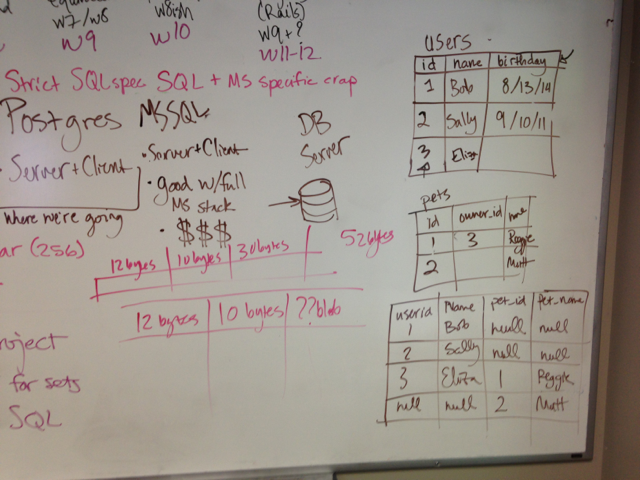 w7/w8
w9
w8ish
w10
(Rails)
w9+?
w11-12
Strict SQL spec SQL + MS specific crap
Postgres
Server+Client
where we're going
MSSQL
• Server+Client
• good w/full
MS stack
• $$$
DB
Server
ar (256)
12 bytes 10 bytes 30 bytes 52 bytes
12 bytes 10 bytes ??blob
roject
for sets
SQL
users
id name birthday
1 Bob 8/13/14
2 Sally 9/10/11
3 Eliza
pets
id owner_id name
1 3 Reggie
2 Matt
userid Name pet_id pet_name
1 Bob null null
2 Sally null null
3 Eliza 1 Reggie
null null 2 Matt